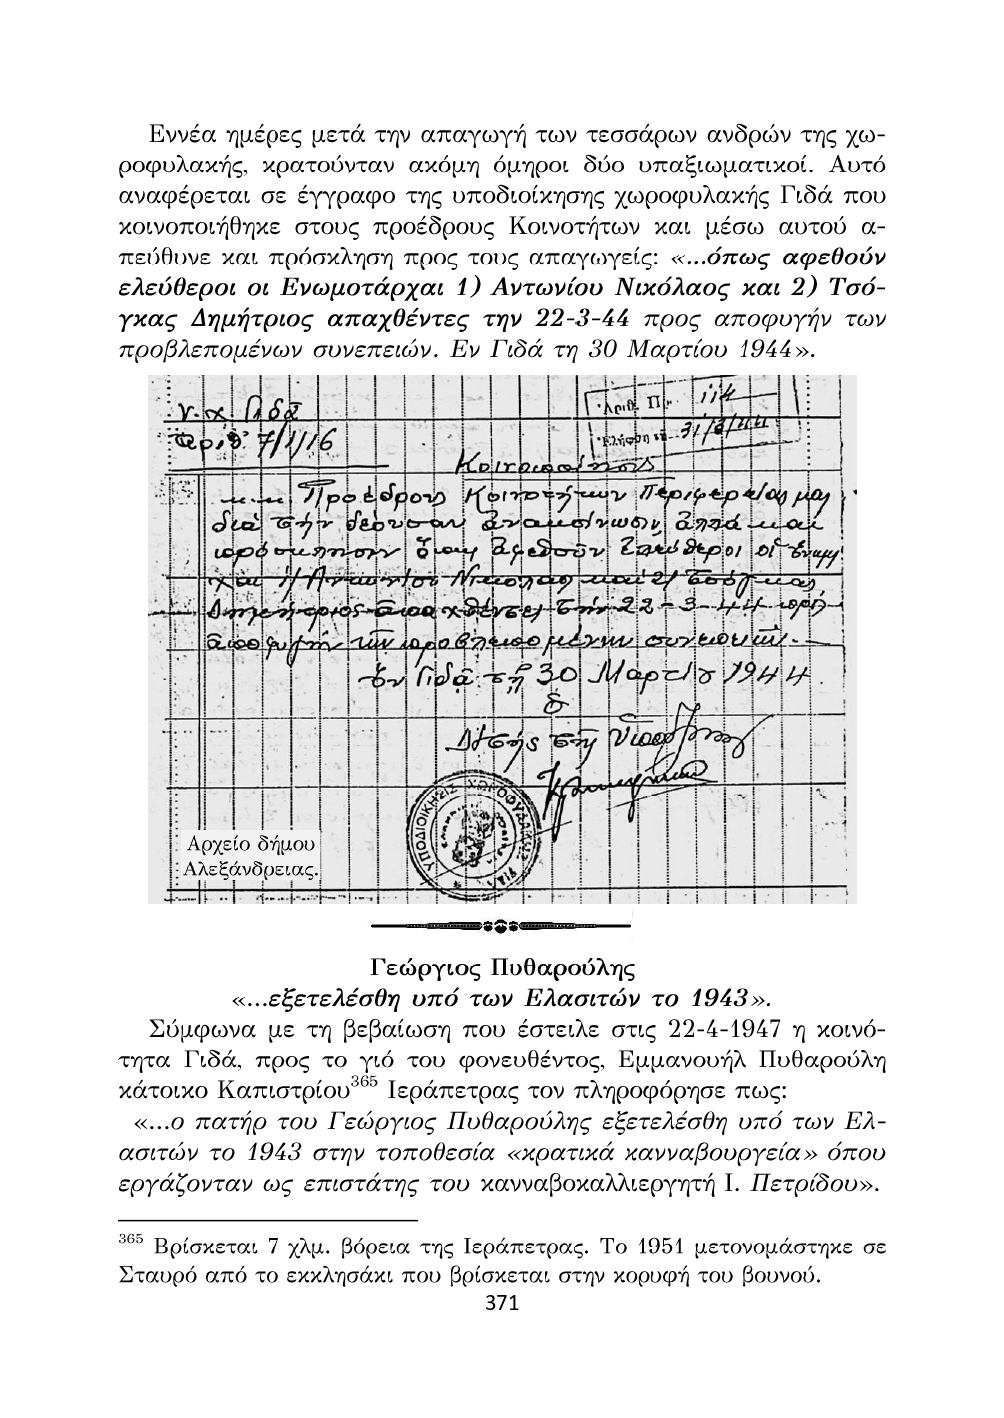 Εννέα ημέρες μετά την απαγωγή των τεσσάρων ανδρών της χω-
ροφυλακής, κρατούνταν ακόμη όμηροι δύο υπαξιωματικοί. Αυτό
αναφέρεται σε έγγραφο της υποδιοίκησης χωροφυλακής Γιδά που
κοινοποιήθηκε στους προέδρους Κοινοτήτων και μέσω αυτού α-
πεύθυνε και πρόσκληση προς τους απαγωγείς: «...όπως αφεθούν
ελεύθεροι οι Ενωμοτάρχαι 1) Αντωνίου Νικόλαος και 2) Τσό-
γκας Δημήτριος απαχθέντες την 22-3-44 προς αποφυγήν των
προβλεπομένων συνεπειών. Εν Γιδά τη 30 Μαρτίου 1944».
Υ.Χ. Γιδᾶ
Ἀριθ. Π. 114
Ἀριθ. 7/1/16
31/3/44
Κοινοποίησις
κ.κ. Προέδρους Κοινοτήτων Περιφερείας μας
διά τήν δέουσαν ἀνακοίνωσιν ἀλλά καί
πρόσκλησιν ὅπως ἀφεθοῦν ἐλεύθεροι οἱ
χαι 1) Ἀντωνίου Νικόλαος καί 2) Τσόγκας
Δημήτριος ἀπαχθέντες τήν 22-3-44 πρός
ἀποφυγήν τῶν προβλεπομένων συνεπειῶν.-
Ἐν Γιδᾶ τῇ 30 Μαρτίου 1944
Ὁ
Δ/τής τῆς
ΥΠΟΔΙΟΙΚΗΣΙΣ ΧΩΡΟΦΥΛΑΚΗΣ ΓΙΔΑ
Αρχείο δήμου
Αλεξάνδρειας.
Γεώργιος Πυθαρούλης
«...εξετελέσθη υπό των Ελασιτών το 1943».
Σύμφωνα με τη βεβαίωση που έστειλε στις 22-4-1947 η κοινό-
τητα Γιδά, προς το γιό του φονευθέντος, Εμμανουήλ Πυθαρούλη
κάτοικο Καπιστρίου365 Ιεράπετρας τον πληροφόρησε πως:
«...ο πατήρ του Γεώργιος Πυθαρούλης εξετελέσθη υπό των Ελ-
ασιτών το 1943 στην τοποθεσία «κρατικά κανναβουργεία» όπου
εργάζονταν ως επιστάτης του κανναβοκαλλιεργητή Ι. Πετρίδου».
365 Βρίσκεται 7 χλμ. βόρεια της Ιεράπετρας. Το 1951 μετονομάστηκε σε
Σταυρό από το εκκλησάκι που βρίσκεται στην κορυφή του βουνού.
371